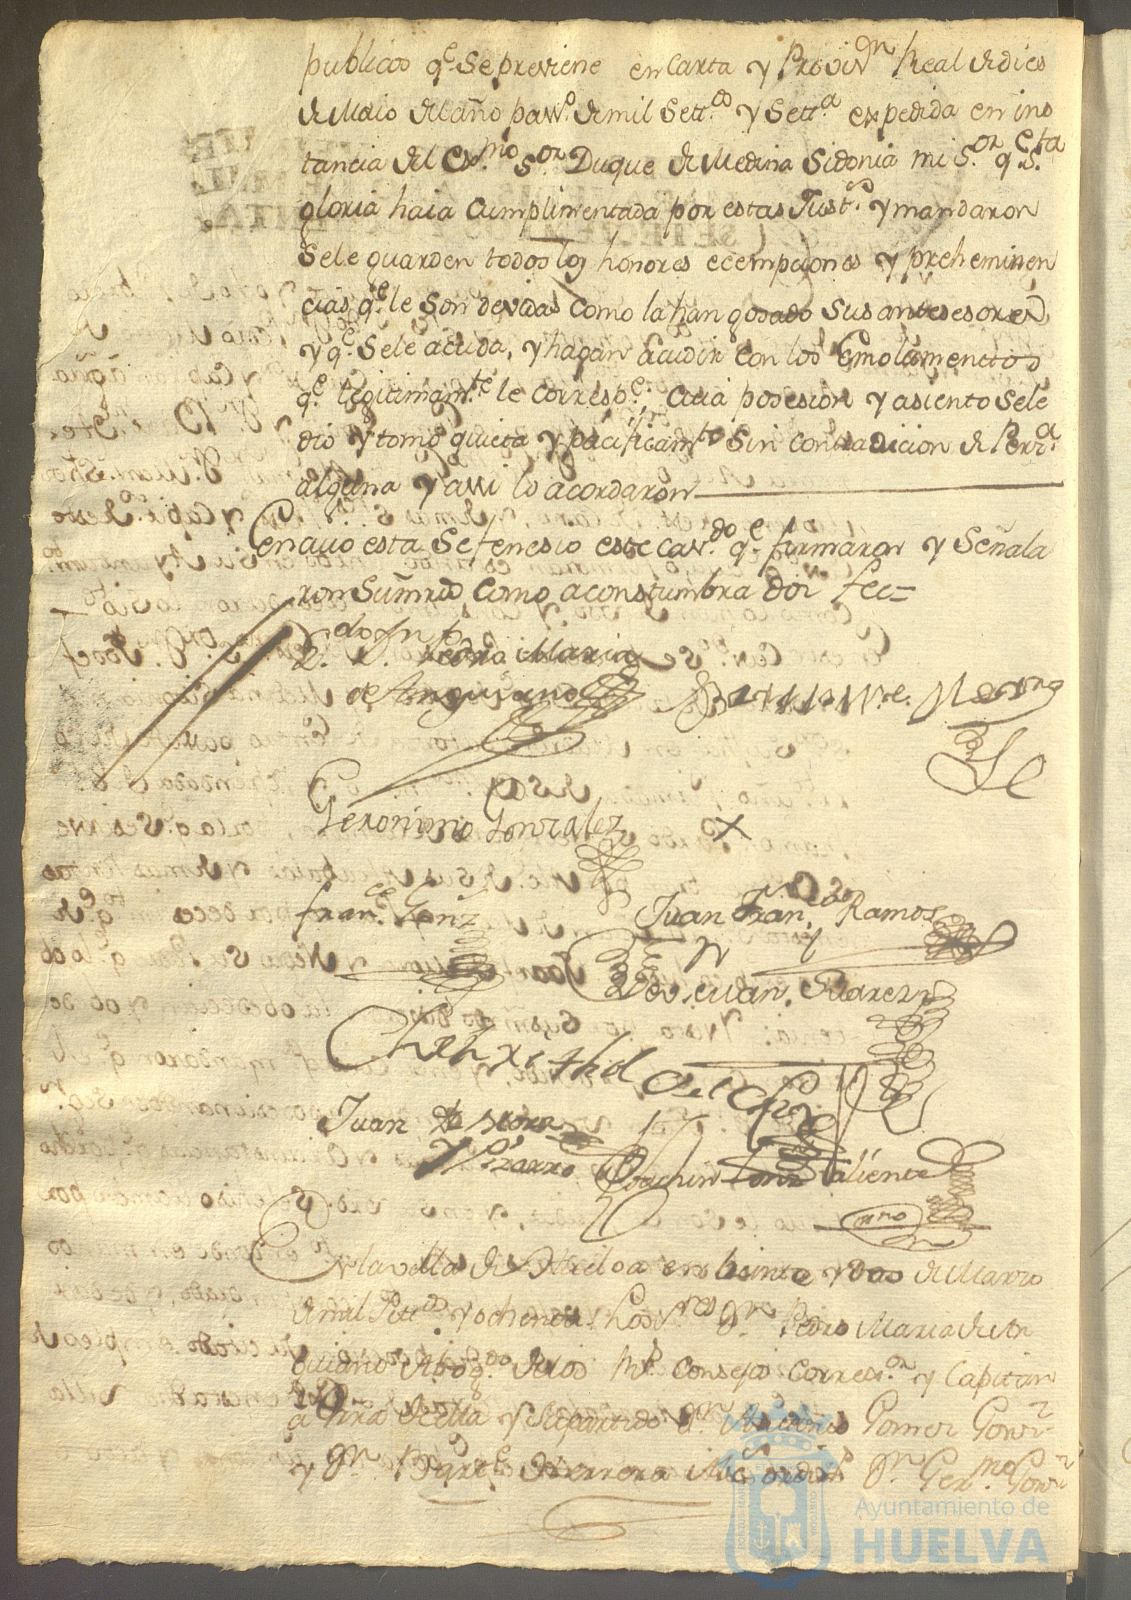 publicos q.e Se previene en Carta y Provis.on Real de dies
de Maio del año pas.do de mil Sett.os y Sett.a expedida en ins
tancia del Ex.mo S.or Duque de Medina Sidonia mi S.or q.e S.ta
gloria haia Cumplimentada por estas Just.s y mandaron
Sele guarden todos los honores ecempciones y preheminen
cias q.e le Son devidas como la han gosado Sus antesesores
y q.e Sele acuda, y hagan acudir con los Emolumenctos
q.e legitimam.te le corresp.e Cuia posesion y asiento Sele
dio y tomo quieta y pacificam.te Sin contradicion de Perz.a
alguna y assi lo acordaron
En cuio esta Se fenesio este cav.do q.e firmaron y Señala
ron Sus mrds como acostumbra doi fee=
L.do D.n Pedro Maria
de Anguiano
Geronimo Gonzalez
X
fran.co Gonz
Juan Fran.co Ramos
Juan Suarez
del
Juan de Mora
Pizarro
Joachin Gonz Caliente
En la villa de Huelva en beinte y dos de Marzo
de mil Sett.os y ochenta Los S.res D.n Pedro Maria de An
guiano Abog.do delos R.s Consejos Correx.or y Capitan
a Grra de ella y su partido D.n Gomez Gonz
y D.n Herrera D.n Ger.mo Gonz
Ayuntamiento de
HUELVA